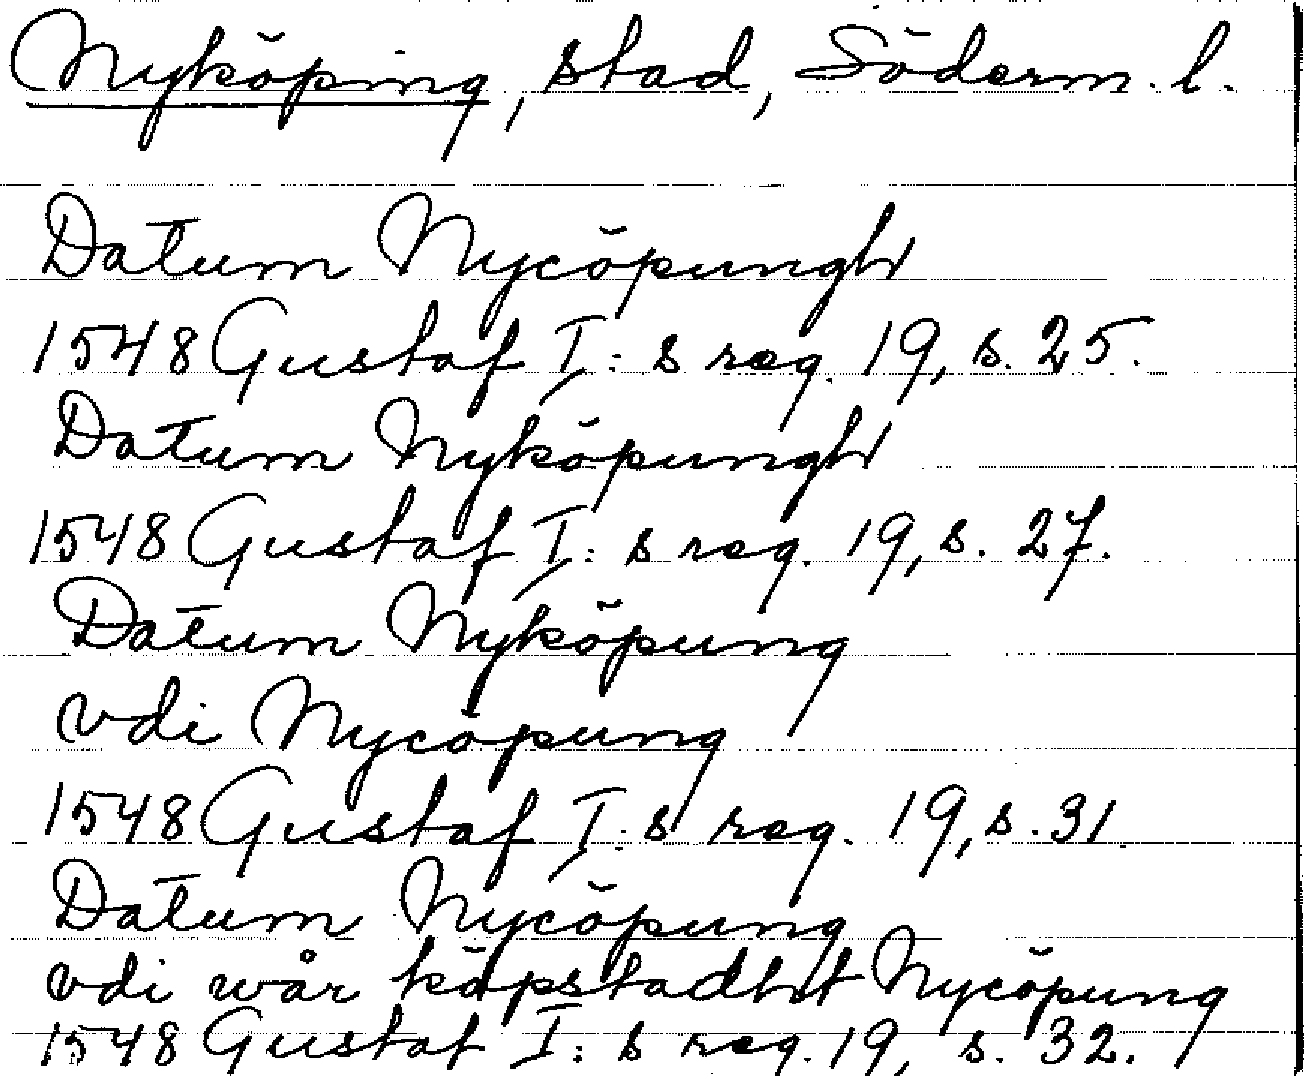 Nyköping, stad, Söderm. l.
Datum Nycöpungh
1548 Gustaf I: s reg. 19, s. 25.
Datum Nyköpungh
1548 Gustaf I: s reg. 19, s. 27.
Datum Nyköpung
vdi Nycöpung
1548 Gustaf I: s reg. 19, s. 31
Datum Nycöpung
vdi wår Nycöpung
1548 Gustaf I: s reg. 19, s. 32.